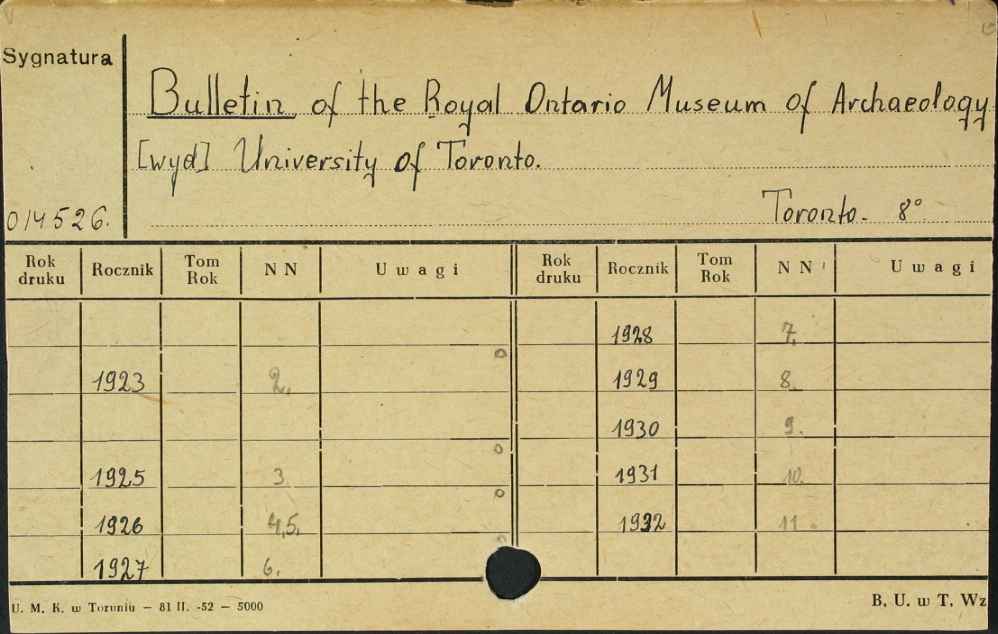 Sygnatura
Bulletin of the Royal Ontario Museum of Archaeology
[wyd] University of Toronto.
014526.
Toronto. 8°
Rok druku Rocznik Tom Rok NN Uwagi Rok druku Rocznik Tom Rok NN Uwagi
1928 7.
1923 2. 1929 8.
1930 9.
1925 3 1931 10.
1926 4,5. 1932 11.
1927 6.
U. M. K. w Toruniu – 81 II. -52 – 5000
B. U. w T. Wz